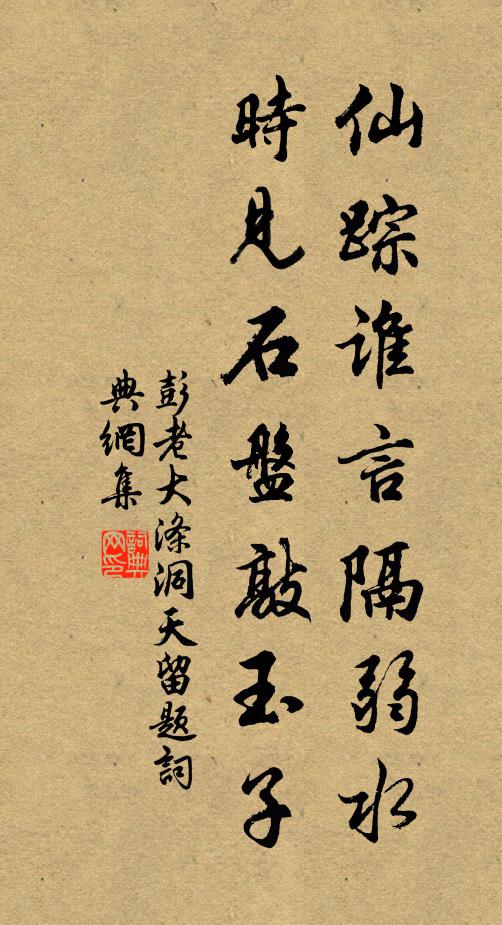 仙踪谁言隔弱水
時見石盤敲玉子
彭老大滌洞天留题詞
典網集
詞典
网印